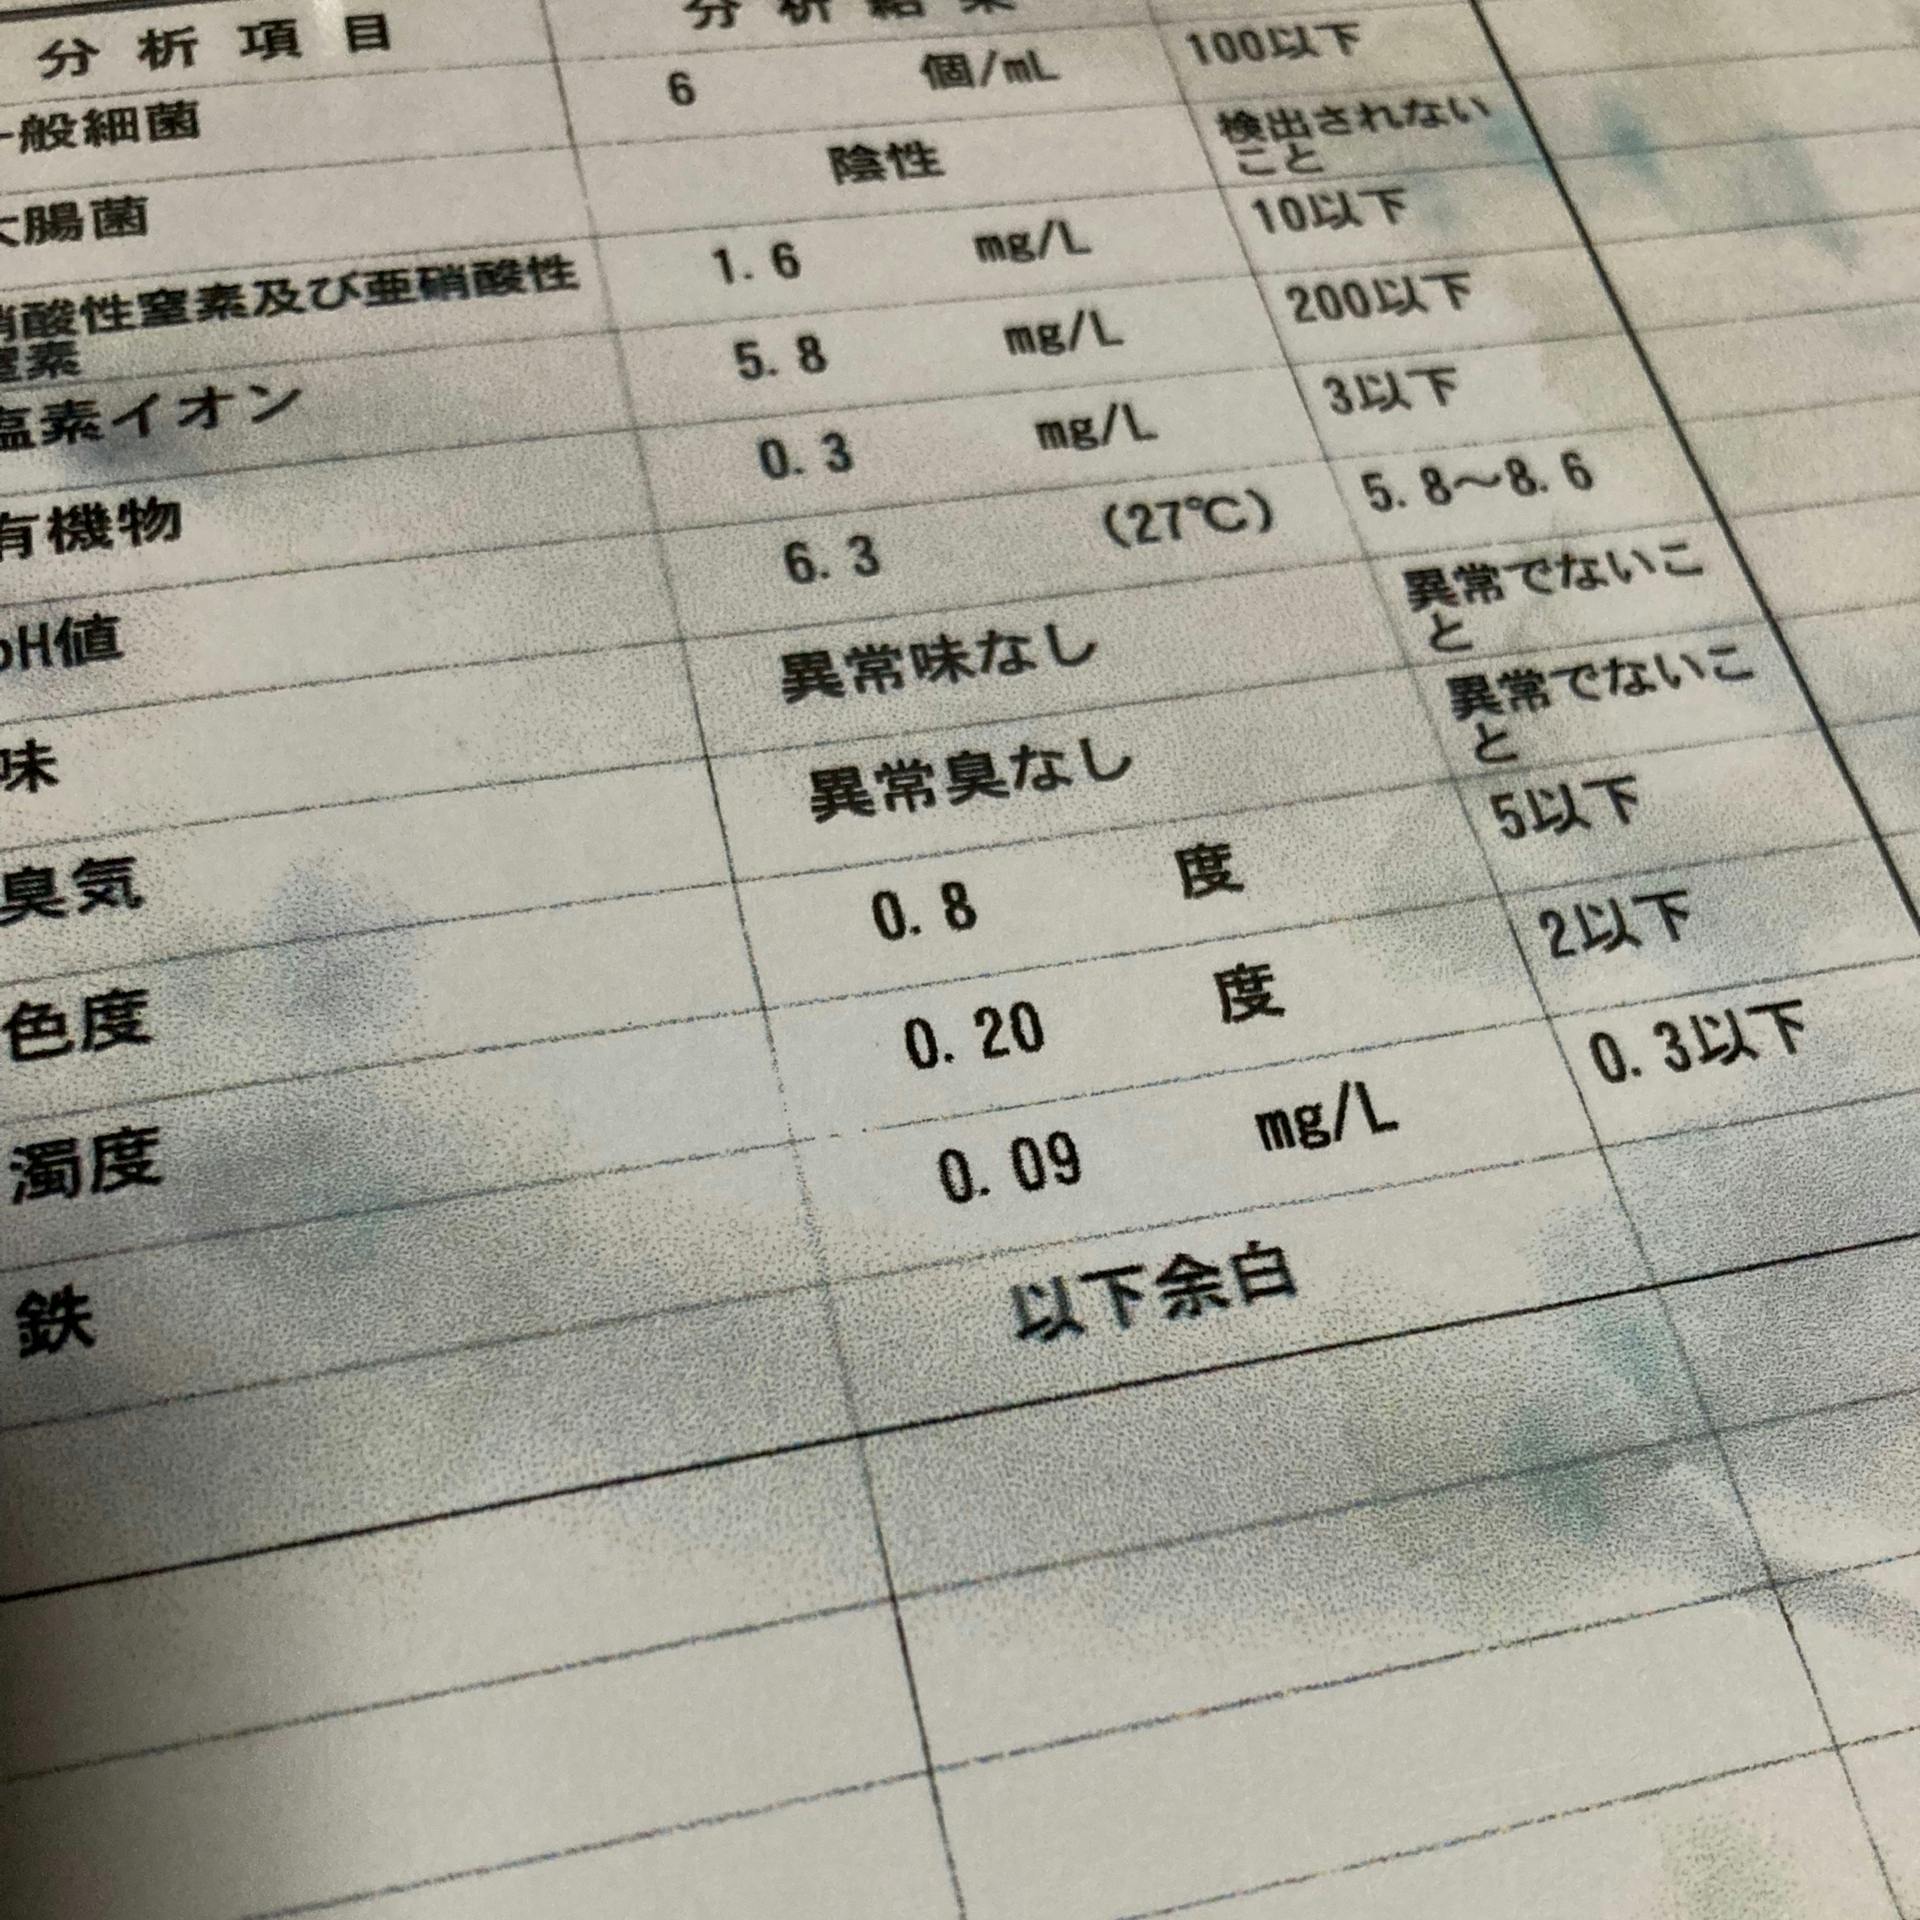 分析項目 分析結果
一般細菌 6 個/mL 100以下
大腸菌 陰性 検出されない
こと
硝酸性窒素及び亜硝酸性
窒素 1.6 mg/L 10以下
塩素イオン 5.8 mg/L 200以下
有機物 0.3 mg/L 3以下
pH値 6.3 (27℃) 5.8～8.6
味 異常味なし 異常でないこ
と
臭気 異常臭なし 異常でないこ
と
色度 0.8 度 5以下
濁度 0.20 度 2以下
鉄 0.09 mg/L 0.3以下
以下余白